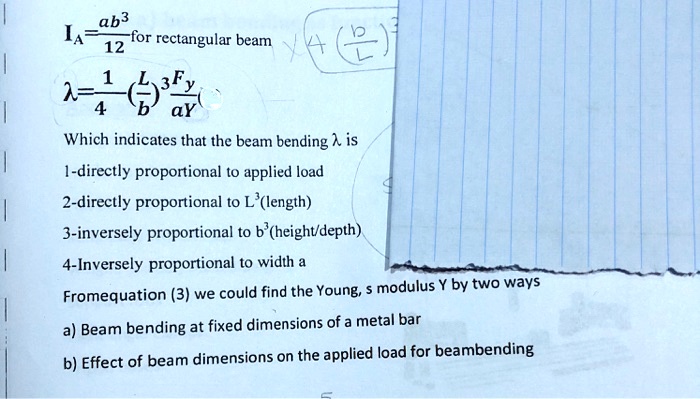 I_A=ab³/12 for rectangular beam x 4 (b/L)³
λ=1/4 (L/b)³ F_y/aY (
Which indicates that the beam bending λ is
1-directly proportional to applied load
2-directly proportional to L³(length)
3-inversely proportional to b³(height/depth)
4-Inversely proportional to width a
Fromequation (3) we could find the Young, s modulus Y by two ways
a) Beam bending at fixed dimensions of a metal bar
b) Effect of beam dimensions on the applied load for beambending